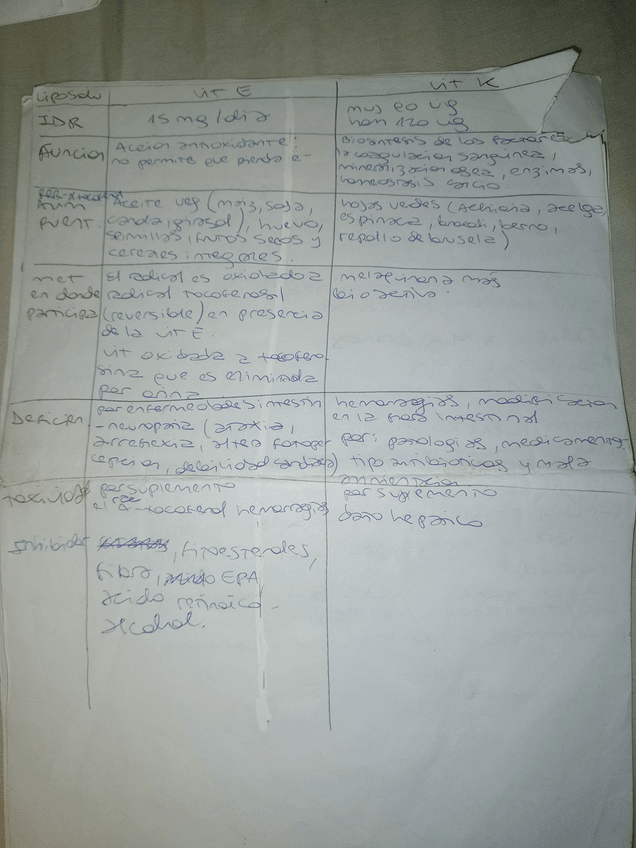 Liposolu
Vit E
Vit K
IDR
15 mg/dia
muj 90 ug
hom 120 ug
Funcion
Accion antioxidante:
no permite que pierda e-
Biosintesis de los factores
la coagulacion sanguinea,
mineralizacion osea, enzimas,
homeostasis calcio
Alim
Fuent.
Aceite veg (maiz, soja,
canola, girasol), huevo,
semillas, frutos secos y
cereales integrales.
hojas verdes (Achicoria, acelga,
espinaca, brocoli, berro,
repollo de bruselas)
met
en donde
participa
El radical es oxidado a
radical tocoferoxil
(reversible) en presencia
de la vit E.
vit oxidada a
que es eliminada
por orina
menaquinona más
bioactiva.
Deficien
por enfermedades intestin
-neuropatia (ataxia,
arreflexia, altera fotoper
cepcion, debilidad cardiaca)
hemorragias, modificacion
en la flora intestinal
por: patologias, medicamento
tipo antibioticos y mala
alimentacion
Toxicidad
por suplemento
el -tocoferol hemorragias
por suplemento
daño hepatico
Inhibidor
, fitoesteroles,
fibra, EPA,
acido retinoico
alcohol.